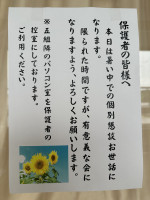 保護者の皆様へ
本日は暑い中での個別懇談お世話に
なります。
限られた時間ですが、有意義な会に
なりますよう、よろしくお願いします。
※五組隣のパソコン室を保護者の
控室にしております。
ご利用ください。